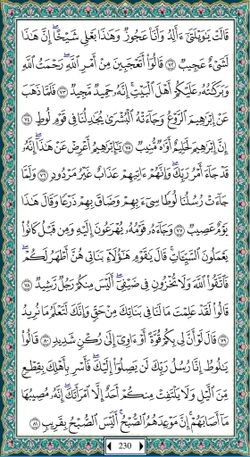 قَالَتْ يَٰوَيْلَتَىٰٓ ءَأَلِدُ وَأَنَا۠ عَجُوزٌ وَهَٰذَا بَعْلِى شَيْخًا ۖ إِنَّ هَٰذَا
لَشَىْءٌ عَجِيبٌ ٧٢ قَالُوٓا۟ أَتَعْجَبِينَ مِنْ أَمْرِ ٱللَّهِ ۖ رَحْمَتُ ٱللَّهِ
وَبَرَكَٰتُهُۥ عَلَيْكُمْ أَهْلَ ٱلْبَيْتِ ۚ إِنَّهُۥ حَمِيدٌ مَّجِيدٌ ٧٣ فَلَمَّا ذَهَبَ
عَنْ إِبْرَٰهِيمَ ٱلرَّوْعُ وَجَآءَتْهُ ٱلْبُشْرَىٰ يُجَٰدِلُنَا فِى قَوْمِ لُوطٍ ٧٤
إِنَّ إِبْرَٰهِيمَ لَحَلِيمٌ أَوَّٰهٌ مُّنِيبٌ ٧٥ يَٰٓإِبْرَٰهِيمُ أَعْرِضْ عَنْ هَٰذَآ ۖ إِنَّهُۥ
قَدْ جَآءَ أَمْرُ رَبِّكَ ۖ وَإِنَّهُمْ ءَاتِيهِمْ عَذَابٌ غَيْرُ مَرْدُودٍ ٧٦ وَلَمَّا
جَآءَتْ رُسُلُنَا لُوطًا سِىٓءَ بِهِمْ وَضَاقَ بِهِمْ ذَرْعًا وَقَالَ هَٰذَا
يَوْمٌ عَصِيبٌ ٧٧ وَجَآءَهُۥ قَوْمُهُۥ يُهْرَعُونَ إِلَيْهِ وَمِن قَبْلُ كَانُوا۟
يَعْمَلُونَ ٱلسَّيِّـَٔاتِ ۚ قَالَ يَٰقَوْمِ هَٰٓؤُلَآءِ بَنَاتِى هُنَّ أَطْهَرُ لَكُمْ ۖ
فَٱتَّقُوا۟ ٱللَّهَ وَلَا تُخْزُونِ فِى ضَيْفِىٓ ۖ أَلَيْسَ مِنكُمْ رَجُلٌ رَّشِيدٌ ٧٨
قَالُوا۟ لَقَدْ عَلِمْتَ مَا لَنَا فِى بَنَاتِكَ مِنْ حَقٍّ وَإِنَّكَ لَتَعْلَمُ مَا نُرِيدُ
٧٩ قَالَ لَوْ أَنَّ لِى بِكُمْ قُوَّةً أَوْ ءَاوِىٓ إِلَىٰ رُكْنٍ شَدِيدٍ ٨٠ قَالُوا۟
يَٰلُوطُ إِنَّا رُسُلُ رَبِّكَ لَن يَصِلُوٓا۟ إِلَيْكَ ۖ فَأَسْرِ بِأَهْلِكَ بِقِطْعٍ
مِّنَ ٱلَّيْلِ وَلَا يَلْتَفِتْ مِنكُمْ أَحَدٌ إِلَّا ٱمْرَأَتَكَ ۖ إِنَّهُۥ مُصِيبُهَا
مَآ أَصَابَهُمْ ۚ إِنَّ مَوْعِدَهُمُ ٱلصُّبْحُ ۚ أَلَيْسَ ٱلصُّبْحُ بِقَرِيبٍ ٨١
230